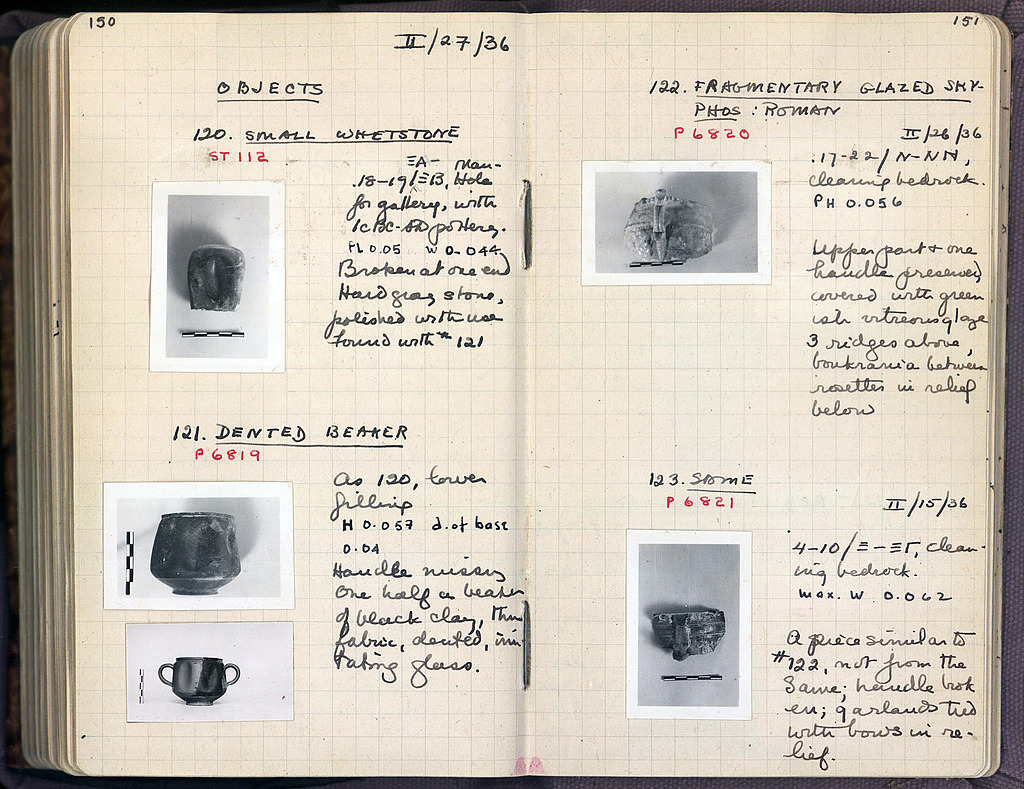 150
II/27/36
OBJECTS
120. SMALL WHETSTONE
ST 112
ΞA- Man-
.18-19/ΞB, Hole
for gallery, with
1cBC-AD pottery.
PL 0.05 W 0.044
Broken at one end
Hard gray stone,
polished with use
Found with #121
121. DENTED BEAKER
P 6819
As 120, lower
filling
H 0.057 d. of base
0.04
Handle missing
One half a beaker
of black clay, thin
fabric, dented, imi-
tating glass.
151
122. FRAGMENTARY GLAZED SKY-
PHOS: ROMAN
P 6820
II/26/36
.17-22/N-NN,
clearing bedrock.
PH 0.056
Upper part + one
handle preserved,
covered with green
ish vitreous glaze
3 ridges above,
boukrania between
rosettes in relief
below
123. SAME
P 6821
II/15/36
4-10/Ξ-ΞΓ, clean-
ing bedrock.
max. W 0.062
A piece similar to
#122, not from the
same; handle brok
en; garlands tied
with bows in re-
lief.